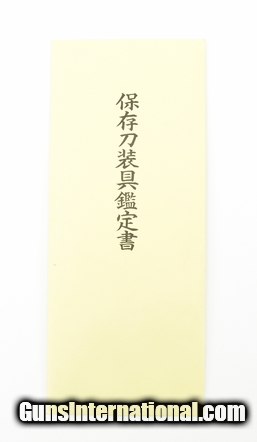 保存刀装具鑑定書
GunsInternational.com